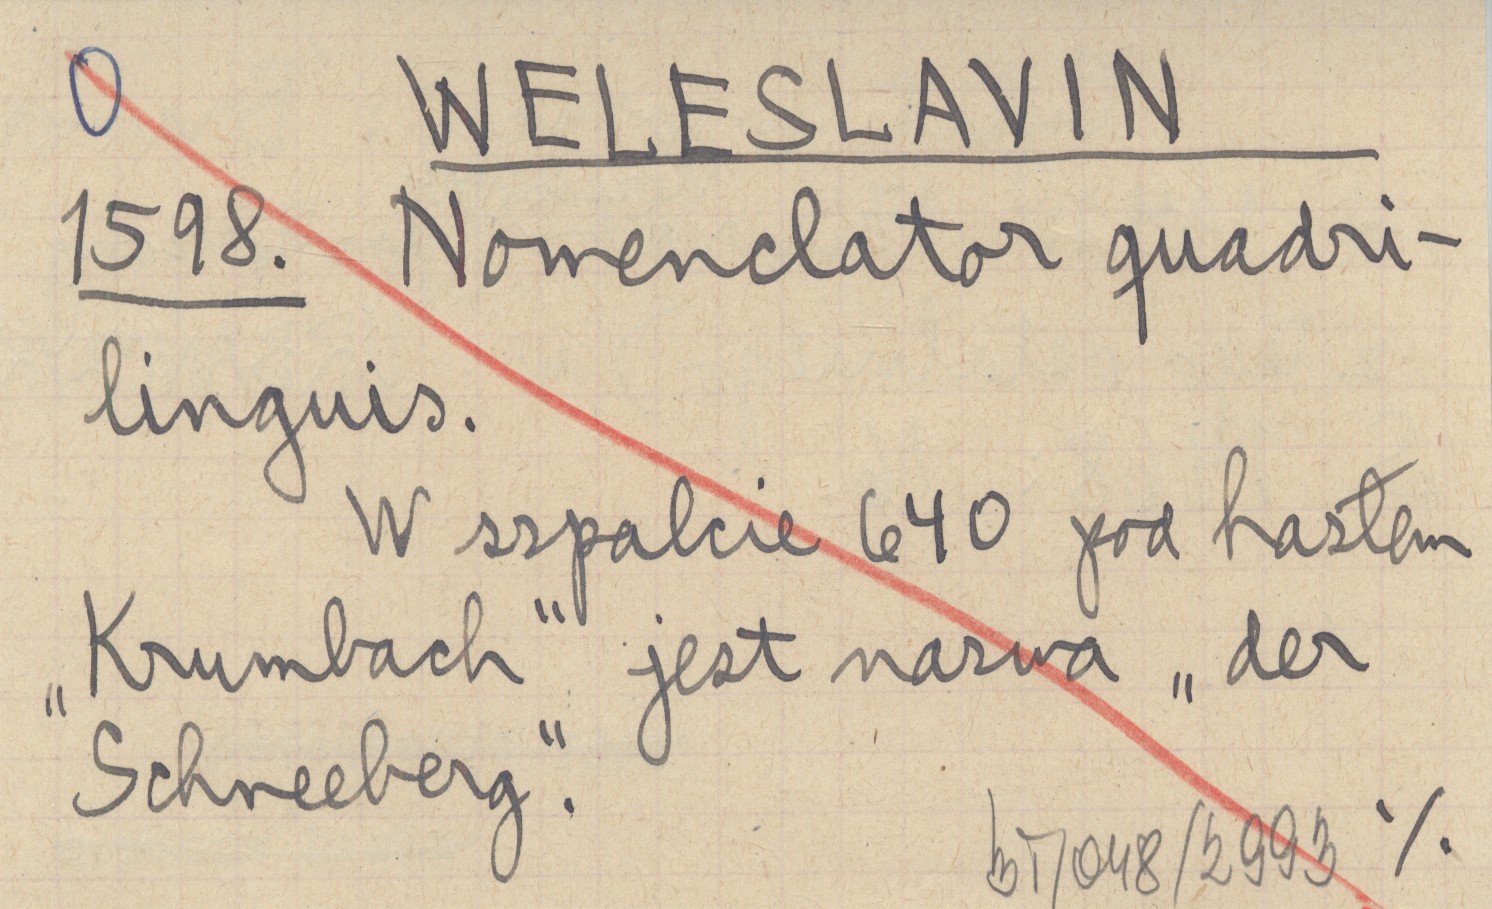 0 WELESLAVIN
1598. Nomenclator quadri-
linguis.
W szpalcie 640 pod hasłem
„Krumbach" jest nazwa „der
Schneeberg".
BT/048/2993 ·/.